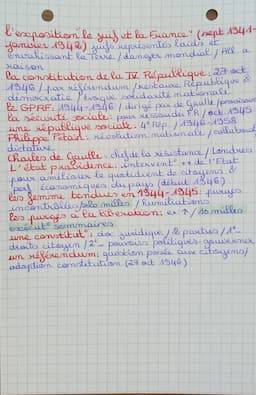 l'exposition le juif et la France" (sept 1941-
janvier 1942) juifs représentés laids et
envahissant la Terre / danger mondial / All. a
raison
la constitution de la IV République: 27 oct
1946 / par référendum / restaure République &
démocratie / évoque solidarité nationale
le GPRF: 1944-1946 / dirigé par de Gaulle /
la sécurité sociale: pour / oct 1945
une république sociale: 4e Rép. / 1946-1958
Philippe Pétain: révolution nationale /
dictature
Charles de Gaulle: chef de la résistance / Londres
L'état providence: intervent° ++ de l'Etat
pour améliorer le quotidien de citoyens &
perf économiques du pays (début 1946)
les femmes tondues en 1944-1945: purges
incontrôlées / 20 milles / humiliations
les purges à la libération: / 10 milles
exécut° sommaires
une constitut°: doc juridique / 2 parties / 1°-
droits citoyen / 2°- pouvoirs politiques gouverner
un référendum: question posée aux citoyens /
adoption constitution (27 oct 1946)